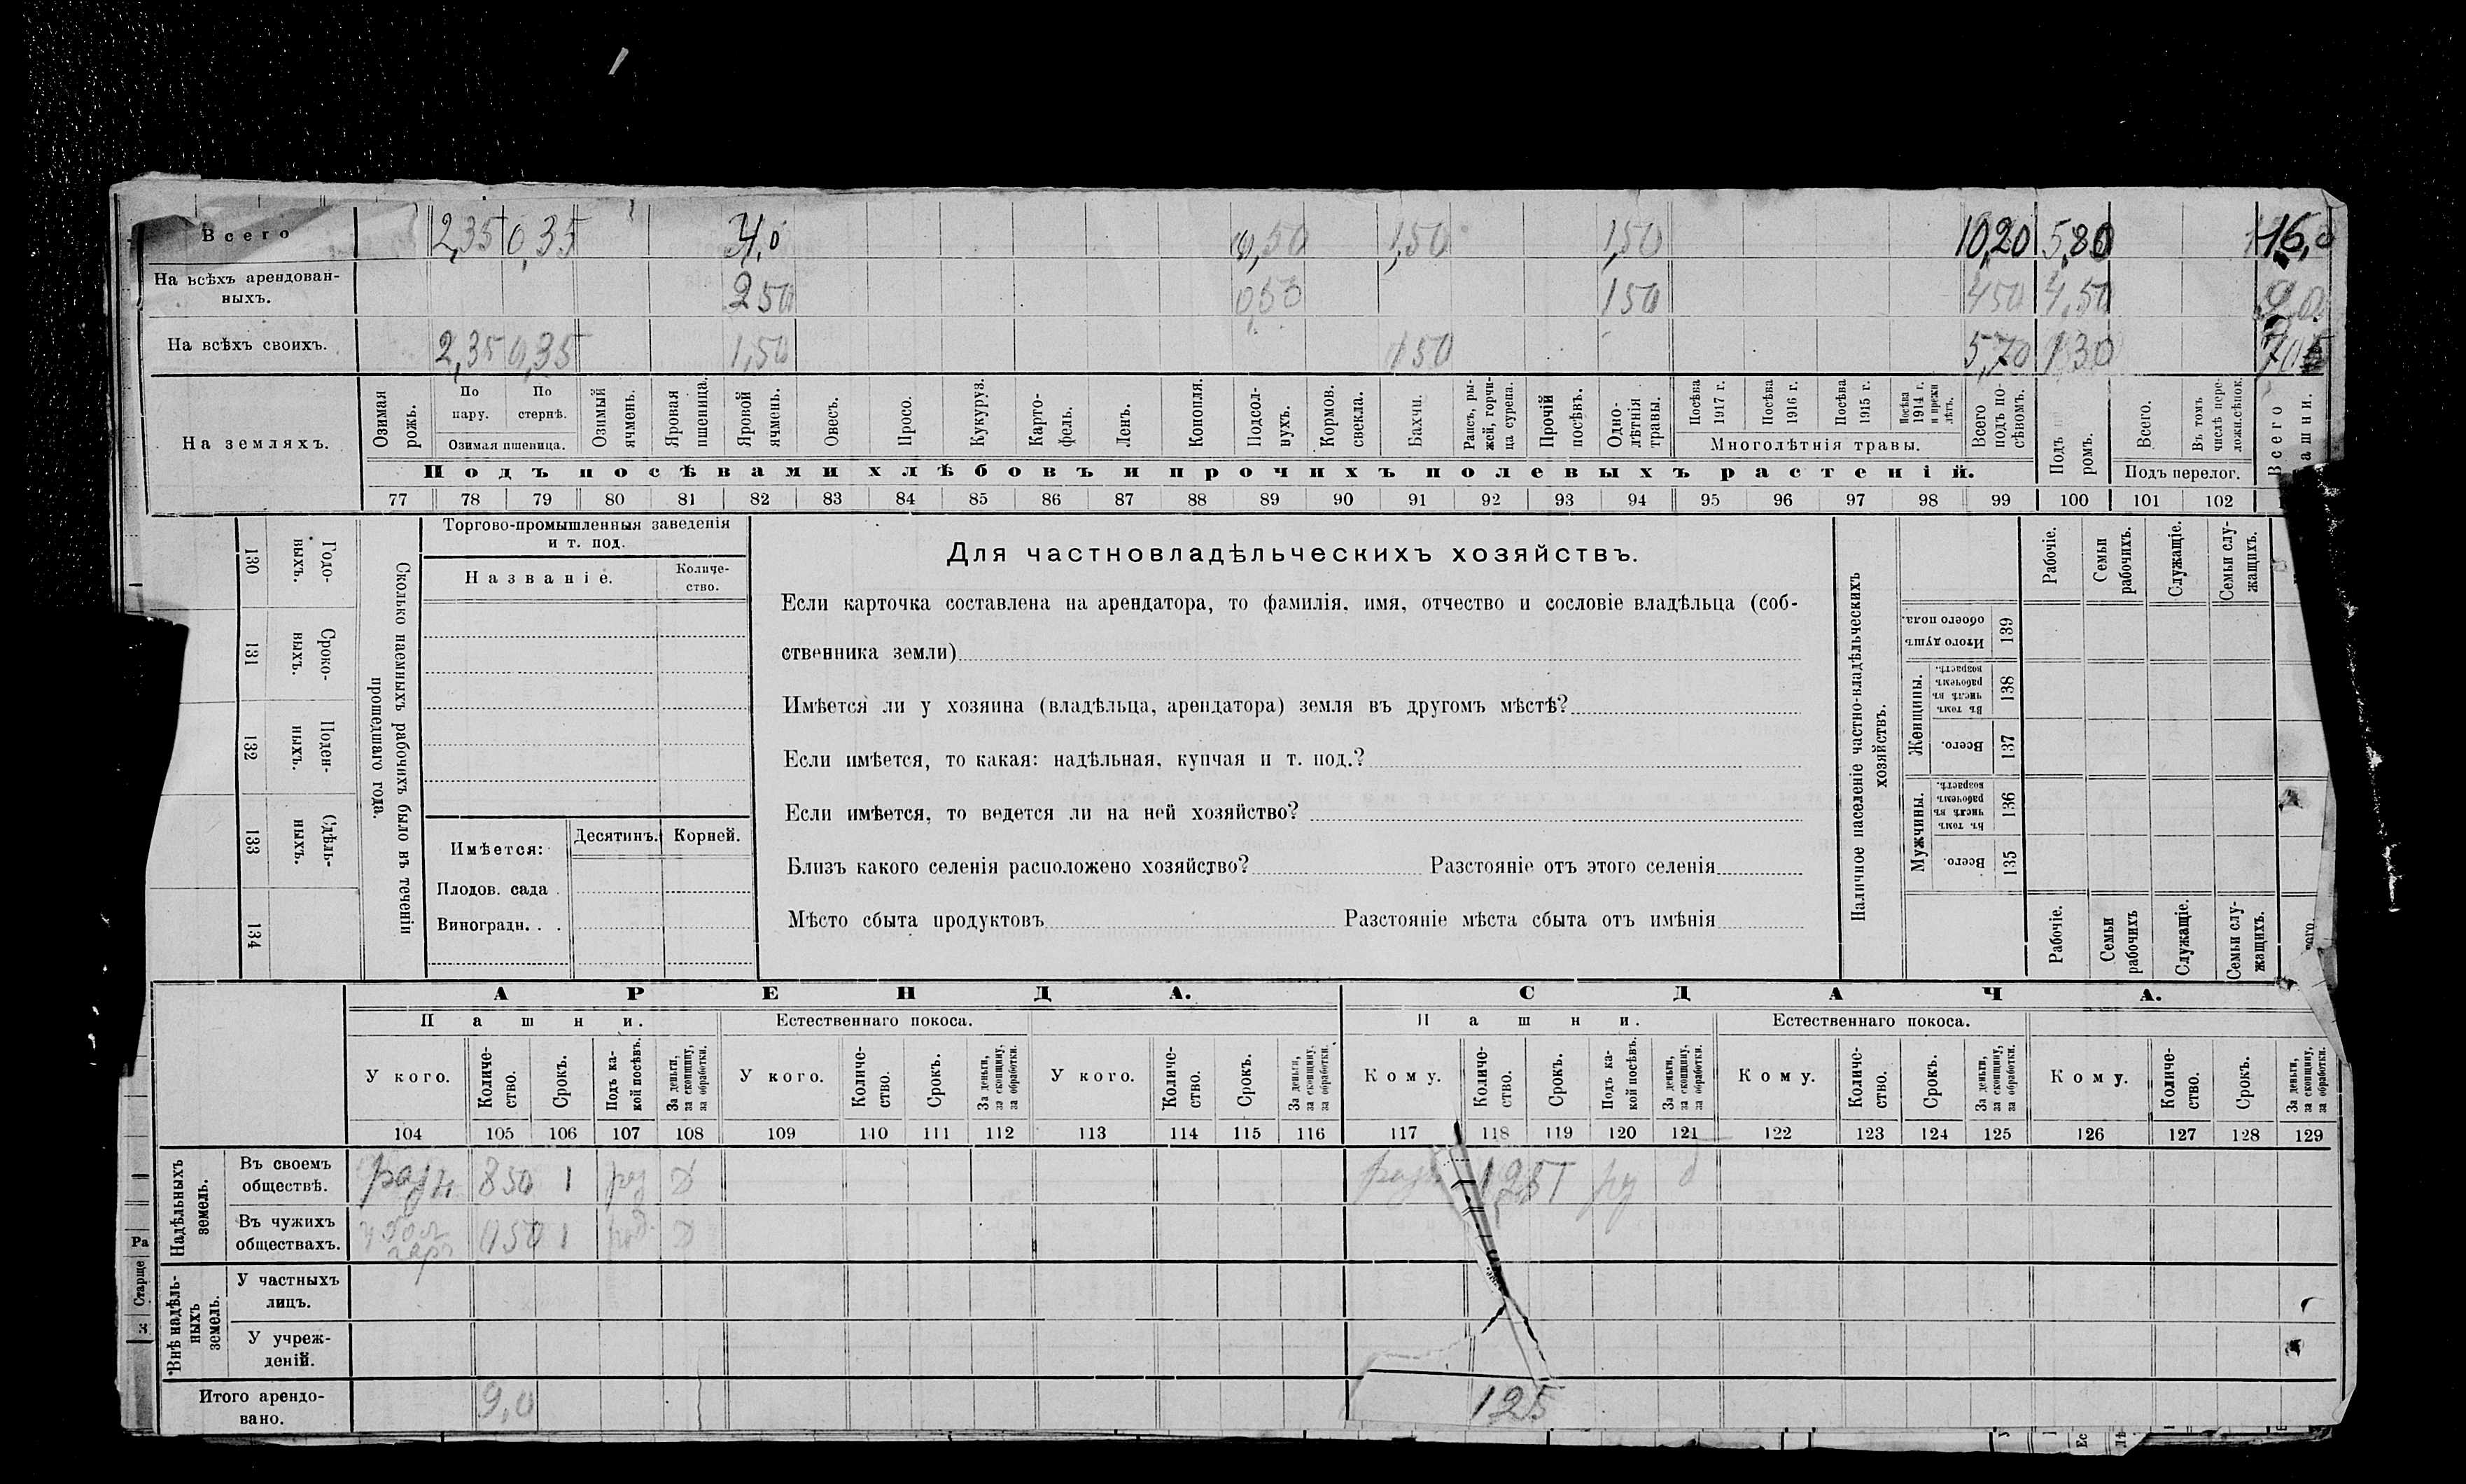 Всего 2,35 0,35 4,0 0,50 1,50 1,50 10,20 5,80 16,0
На всѣхъ арендован-
ныхъ. 2 50 0,50 1 50 4 50 4,50 9,0
На всѣхъ своихъ. 2,35 0,35 1,50 1 50 5,70 1 30
На земляхъ.
Озимая рожь.
По пару.
По стернѣ.
Озимая пшеница.
Озимый ячмень.
Яровая пшеница.
Яровой ячмень.
Овесъ.
Просо.
Кукуруз.
Карто-
фель.
Ленъ.
Конопля.
Подсол-
нухъ.
Кормов. свекла.
Бахчи.
Рапсъ, ры-
жей, горчи-
ца сурепа.
Прочій посѣвъ.
Одно-
лѣтнія травы.
Посѣва 1917 г.
Посѣва 1916 г.
Посѣва 1915 г.
Посѣва 1914 г. и прежн лѣтъ.
Многолѣтнія травы.
Всего подъ по-
сѣвомъ.
Подъ ромъ.
Всего.
Въ томъ числѣ пере-
ложн.сѣнок.
Подъ перелог.
Всего ашни.
Подъ посѣвами хлѣбовъ и прочихъ полевыхъ растеній.
77 78 79 80 81 82 83 84 85 86 87 88 89 90 91 92 93 94 95 96 97 98 99 100 101 102
130 Годо-
выхъ.
131 Сроко-
ныхъ.
132 Поден-
ныхъ.
133 Сдѣль-
ныхъ.
134
Сколько наемныхъ рабочихъ было въ теченіи
прошедшаго года.
Торгово-промышленныя заведенія
и т. под.
Названіе.
Количе-
ство.
Имѣется: Десятинъ. Корней.
Плодов. сада .
Виноградн. . .
Для частновладѣльческихъ хозяйствъ.
Если карточка составлена на арендатора, то фамилія, имя, отчество и сословіе владѣльца (соб-
ственника земли)
Имѣется ли у хозяина (владѣльца, арендатора) земля въ другомъ мѣстѣ?
Если имѣется, то какая: надѣльная, купчая и т. под.?
Если имѣется, то ведется ли на ней хозяйство?
Близъ какого селенія расположено хозяйство? Разстояніе отъ этого селенія
Мѣсто сбыта продуктовъ Разстояніе мѣста сбыта отъ имѣнія
Наличное населеніе частно-владѣльческихъ
хозяйствъ.
Рабочіе.
Семьи рабочихъ.
Служащіе.
Семьи слу-
жащихъ.
Итого душъ обоего пола. 139
Женщины.
Въ томъ числѣ въ рабочемъ возрастѣ. 138
Всего. 137
Мужчины.
Въ томъ числѣ въ рабочемъ возрастѣ. 136
Всего. 135
Рабочіе.
Семьи рабочихъ
Служащіе.
Семьи слу-
жащихъ.
АРЕНДА. СДАЧА.
Пашни. Естественнаго покоса. Пашни. Естественнаго покоса.
У кого.
Количе-
ство.
Срокъ.
Подъ ка-
кой посѣвъ.
За деньги, за скопщину, за обработки.
У кого.
Количе-
ство.
Срокъ.
За деньги, за скопщину, за обработки.
У кого.
Количе-
ство.
Срокъ.
За деньги, за скопщину, за обработки.
Кому.
Количе-
ство.
Срокъ.
Подъ ка-
кой посѣвъ.
За деньги, за скопщину, за обработки.
Кому.
Количе-
ство.
Срокъ.
За деньги, за скопщину, за обработки.
Кому.
Количе-
ство.
Срокъ.
За деньги, за скопщину, за обработки.
104 105 106 107 108 109 110 111 112 113 114 115 116 117 118 119 120 121 122 123 124 125 126 127 128 129
Надѣльныхъ
земель.
Въ своемъ
обществѣ. 8 50 1
Въ чужихъ
обществахъ. 0 50 1
Внѣ надѣль-
ныхъ
земель.
У частныхъ
лицъ.
У учреж-
деній.
Итого арендо-
вано. 9,0 1 25
Ра
Старше